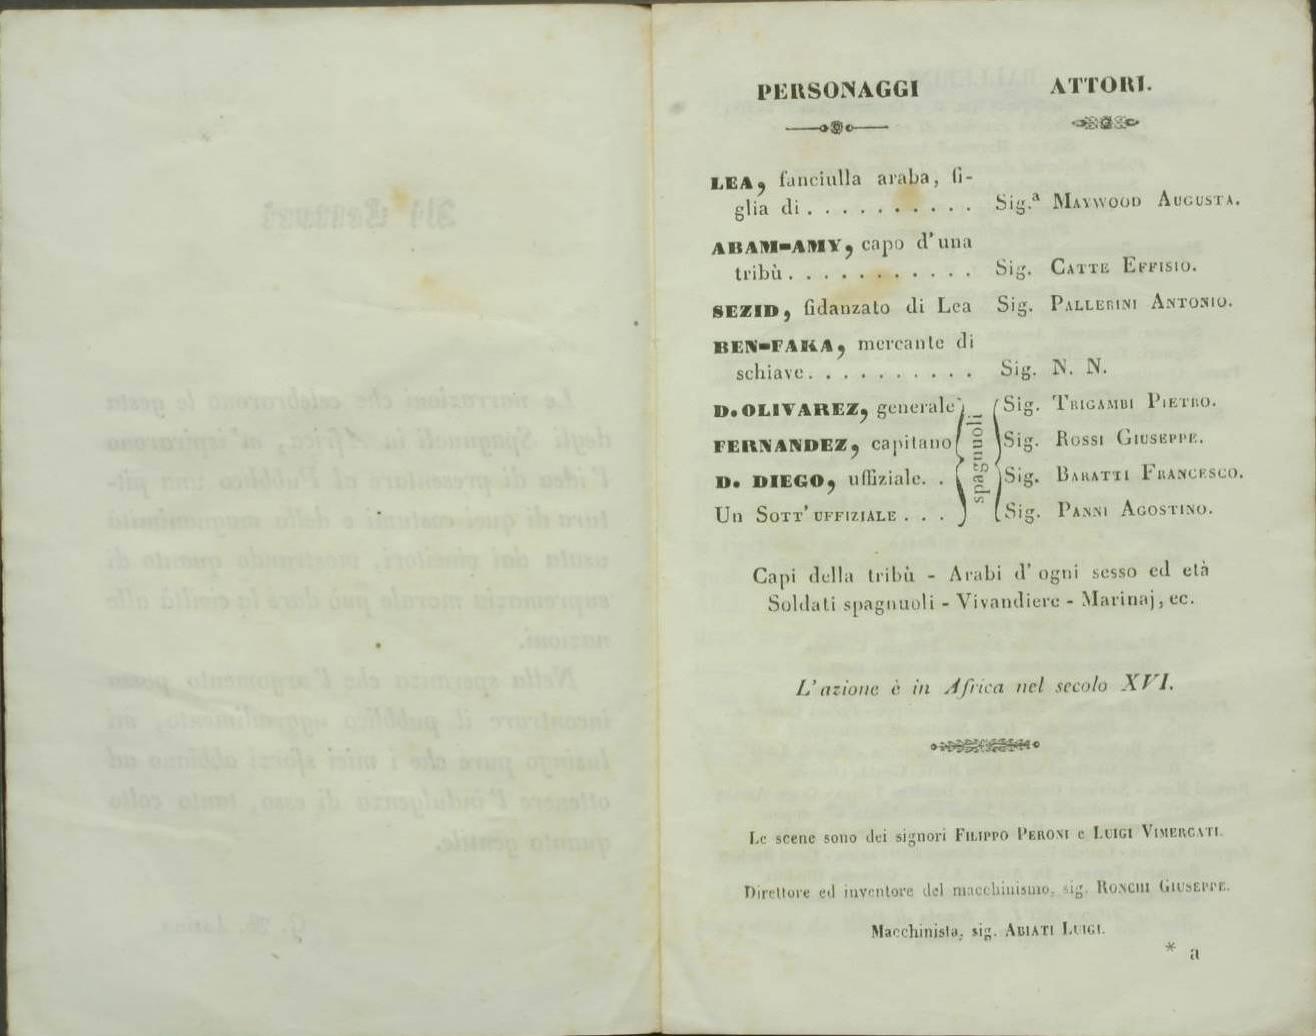 PERSONAGGI ATTORI.
LEA, fanciulla araba, fi-
glia di . . . . . . . . . . Sig.ª MAYWOOD AUGUSTA.
ABAM-AMY, capo d'una
tribù . . . . . . . . . . . Sig. CATTE EFFISIO.
SEZID, fidanzato di Lea Sig. PALLERINI ANTONIO.
BEN-FAKA, mercante di
schiave . . . . . . . . . . Sig. N. N.
D. OLIVAREZ, generale Sig. TRIGAMBI PIETRO.
FERNANDEZ, capitano Sig. ROSSI GIUSEPPE.
spagnuoli
D. DIEGO, uffiziale. . Sig. BARATTI FRANCESCO.
Un SOTT'UFFIZIALE . . . Sig. PANNI AGOSTINO.
Capi della tribù - Arabi d'ogni sesso ed età
Soldati spagnuoli - Vivandiere - Marinaj, ec.
L'azione è in Africa nel secolo XVI.
Le scene sono dei signori FILIPPO PERONI e LUIGI VIMERCATI.
Direttore ed inventore del macchinismo, sig. RONCHI GIUSEPPE.
Macchinista, sig. ABIATI LUIGI.
* a